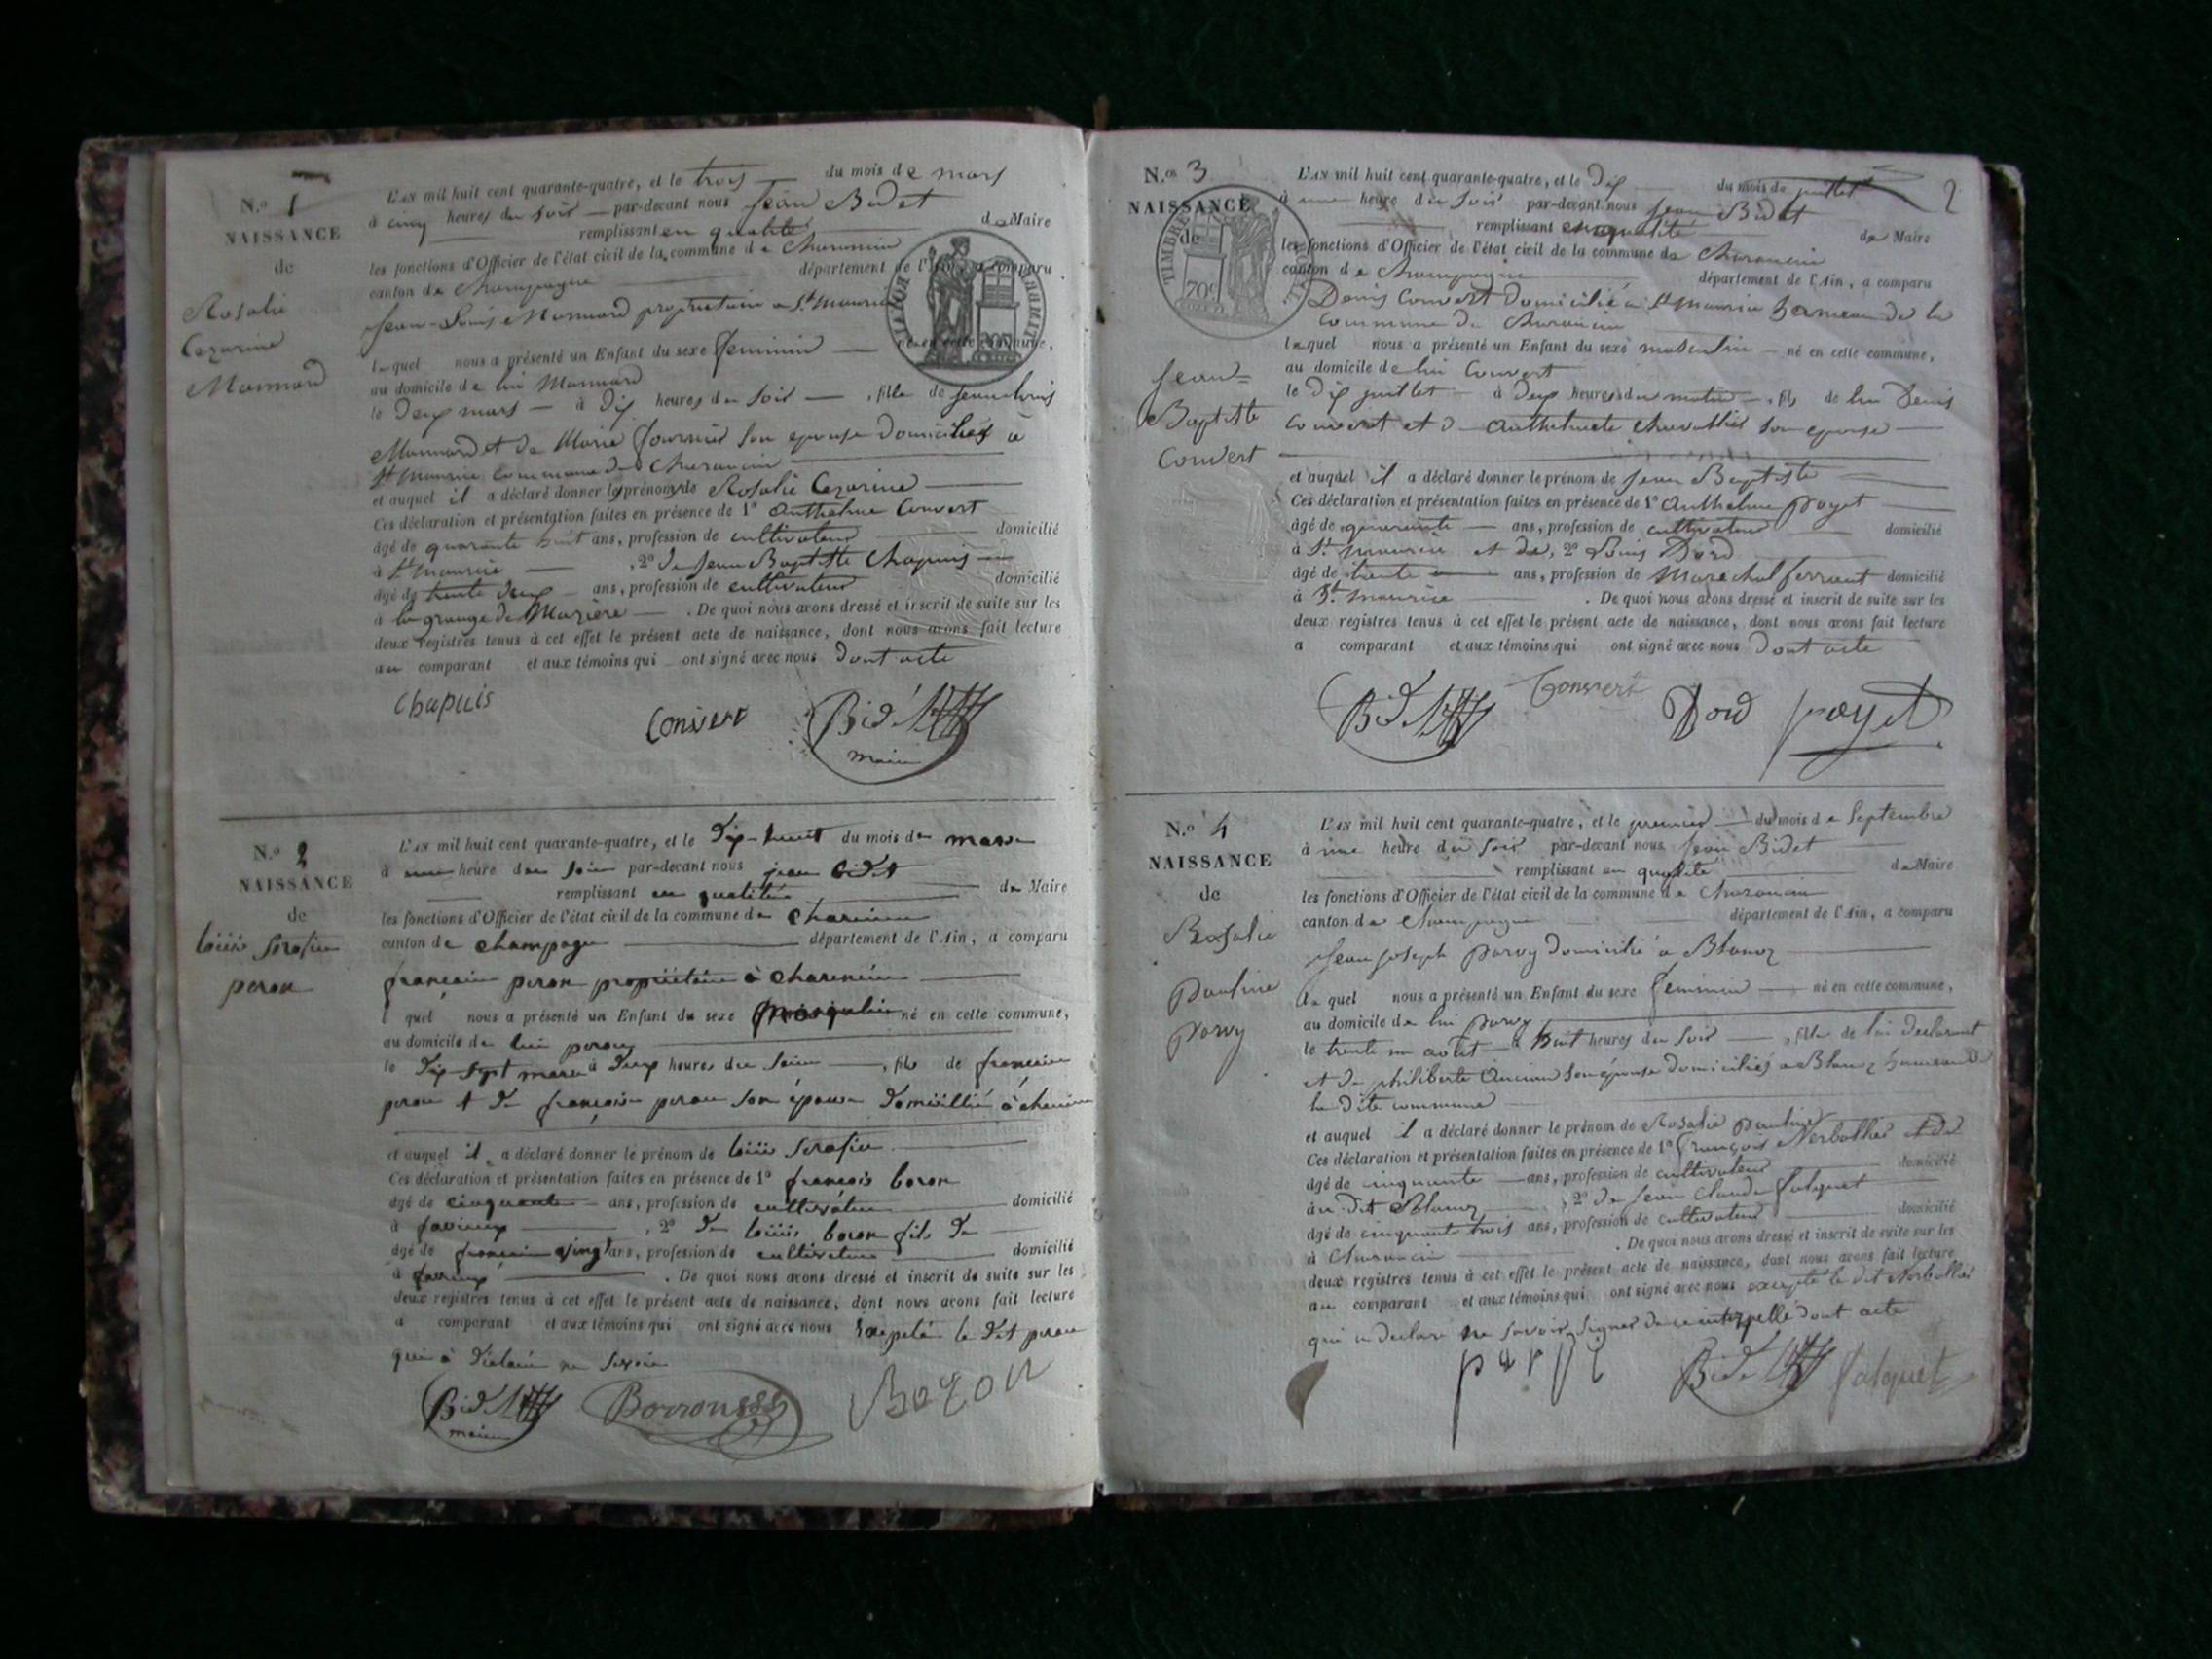 N.° 1
NAISSANCE
de
Rosalie
Cezarine
Monnard
L'AN mil huit cent quarante-quatre, et le trois du mois de mars
à cinq heures du soir par-devant nous Jean Bidet
remplissant en qualité de Maire
les fonctions d'Officier de l'état civil de la commune de Charancin
canton de Champagne département de l'Ain, a comparu
Jean-Louis Monnard propriétaire a St. Maurice
lequel nous a présenté un Enfant du sexe feminin né en cette commune,
au domicile de lui Monnard
le Deux mars à Dix heures du soir , fille de Jean Louis
Monnard et de Marie fournier son epouse domiciliés à
St maurice commune de Charancin
et auquel il a déclaré donner les prénoms de Rosalie Cezarine
Ces déclaration et présentation faites en présence de 1° Anthelme Convert
âgé de quarante huit ans, profession de cultivateur domicilié
à St maurice , 2° de Jean Baptiste Chapuis
âgé de trente deux ans, profession de cultivateur domicilié
à la grange de Mazière . De quoi nous avons dressé et inscrit de suite sur les
deux registres tenus à cet effet le présent acte de naissance, dont nous avons fait lecture
au comparant et aux témoins qui ont signé avec nous dont acte
Chapuis
Convert
Bidet
maire
N.° 2
NAISSANCE
de
peron
L'AN mil huit cent quarante-quatre, et le Dix-huit du mois de mars
à une heure du soir par-devant nous jean Bidet
remplissant en qualité de Maire
les fonctions d'Officier de l'état civil de la commune de
canton de champagne département de l'Ain, a comparu
peron propriétaire à
l quel nous a présenté un Enfant du sexe masqulin né en cette commune,
au domicile de lui peron
le Dix-sept mars à Deux heures du soir , fils de
peron et de peron son épouse
et auquel il a déclaré donner le prénom de
Ces déclaration et présentation faites en présence de 1° francois
âgé de cinquante ans, profession de cultivateur domicilié
à , 2° de fils de
âgé de vingt ans, profession de cultivateur domicilié
à . De quoi nous avons dressé et inscrit de suite sur les
deux registres tenus à cet effet le présent acte de naissance, dont nous avons fait lecture
a comparant et aux témoins qui ont signé avec nous le dit peron
qui à ne savoir
Bidet
maire
N.° 3
2
NAISSANCE
de
TIMBRE
70c
Jean-
Baptiste
Convert
L'AN mil huit cent quarante-quatre, et le Dix du mois de juillet
à une heure du soir par-devant nous Jean Bidet
remplissant en qualité de Maire
les fonctions d'Officier de l'état civil de la commune de Charancin
canton de Champagne département de l'Ain, a comparu
Denis Convert domicilié a St maurice hameau de la
commune de Charancin
lequel nous a présenté un Enfant du sexe masculin né en cette commune,
au domicile de lui Convert
le Dix juillet à Deux heures du matin , fils de lui Denis
Convert et son epouse
et auquel il a déclaré donner le prénom de Jean Baptiste
Ces déclaration et présentation faites en présence de 1° Anthelme poyet
âgé de quarante ans, profession de cultivateur domicilié
à St. maurice et de, 2° Louis Dord
âgé de trente ans, profession de Marechal ferrant domicilié
à St. maurice . De quoi nous avons dressé et inscrit de suite sur les
deux registres tenus à cet effet le présent acte de naissance, dont nous avons fait lecture
a comparant et aux témoins qui ont signé avec nous Dont acte
Bidet Convert Dord poyet
N.° 4
NAISSANCE
de
Rosalie
Pauline
parvy
L'AN mil huit cent quarante-quatre, et le premier du mois de Septembre
à une heure du soir par-devant nous Jean Bidet
remplissant en qualité de Maire
les fonctions d'Officier de l'état civil de la commune de Charancin
canton de Champagne département de l'Ain, a comparu
Jean joseph parvy domicilié a Blanaz
le quel nous a présenté un Enfant du sexe feminin né en cette commune,
au domicile de lui parvy
le trente un août à huit heures du soir , fille de lui declarant
et de philiberte son épouse domiciliés a Blanaz hameau de
la dite commune
et auquel il a déclaré donner le prénom de Rosalie Pauline
Ces déclaration et présentation faites en présence de 1° François
âgé de cinquante ans, profession de cultivateur domicilié
au dit Blanaz , 2° de Jean Claude falquet
âgé de cinquante trois ans, profession de cultivateur domicilié
à Charancin . De quoi nous avons dressé et inscrit de suite sur les
deux registres tenus à cet effet le présent acte de naissance, dont nous avons fait lecture
au comparant et aux témoins qui ont signé avec nous excepté le dit
qui a declaré ne savoir signer de ce interpellé dont acte
Bidet falquet